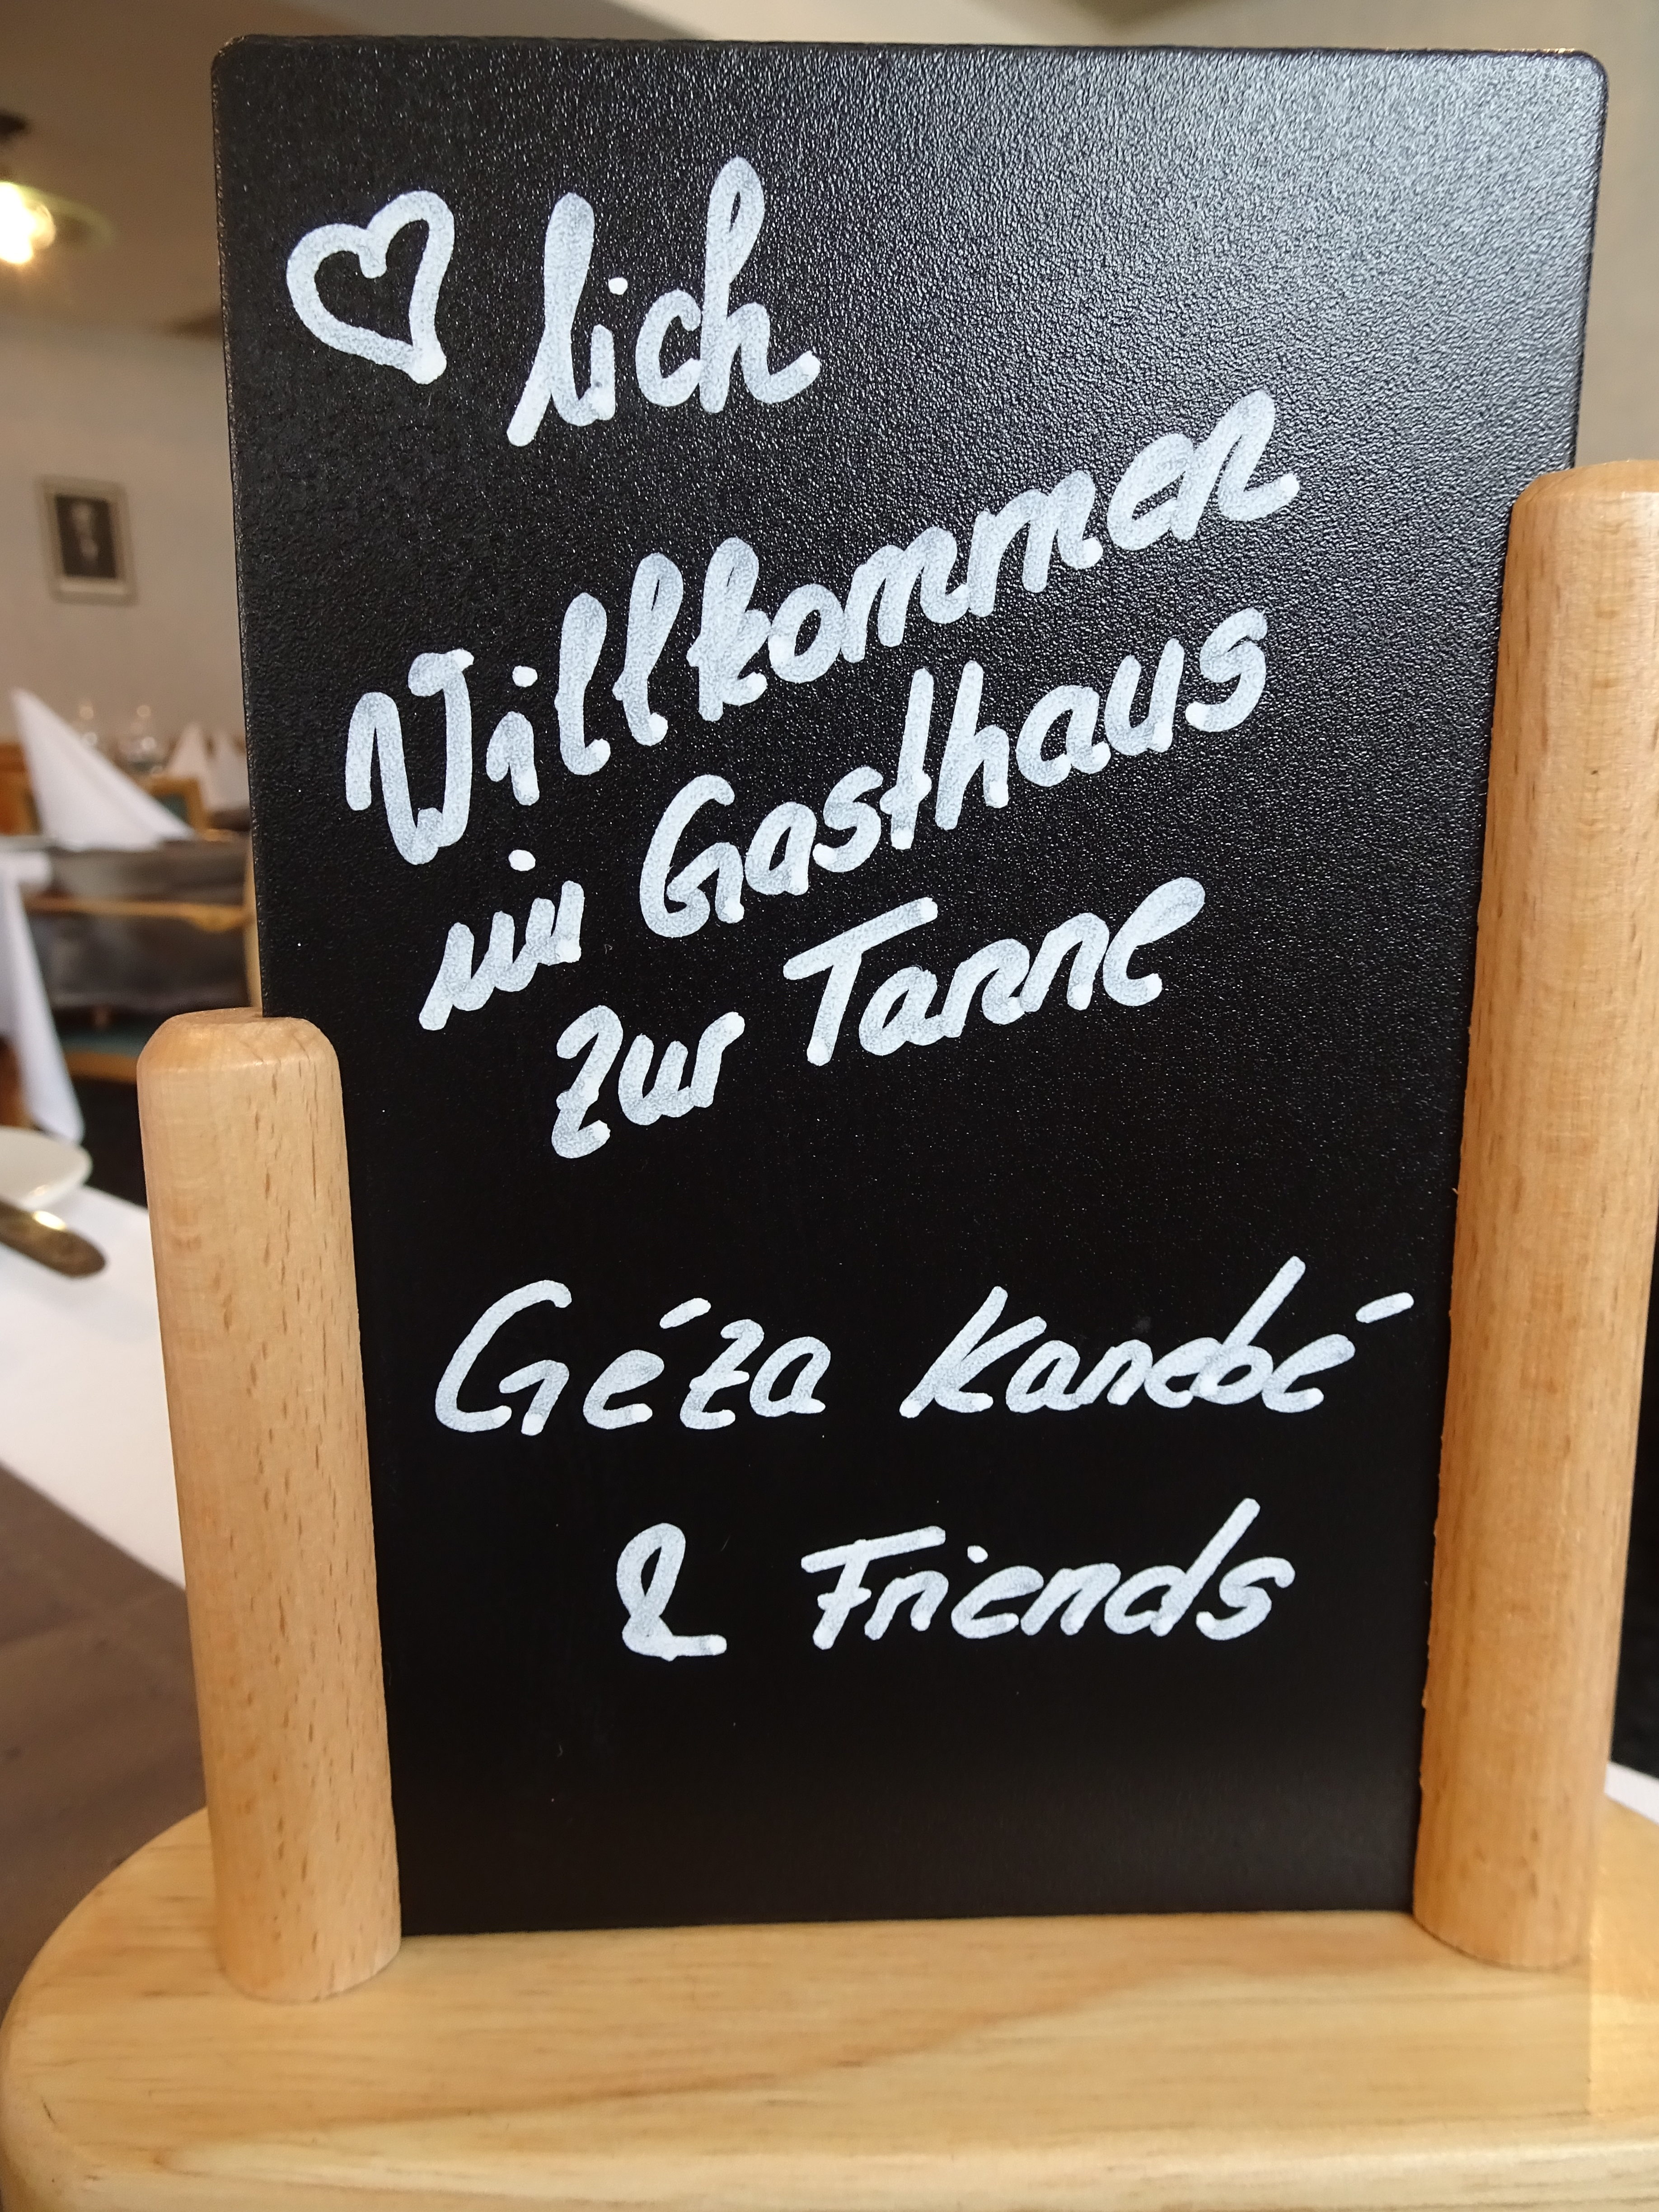 ♡ lich
Willkommen
im Gasthaus
zur Tanne
Géza Kanebé
& Friends